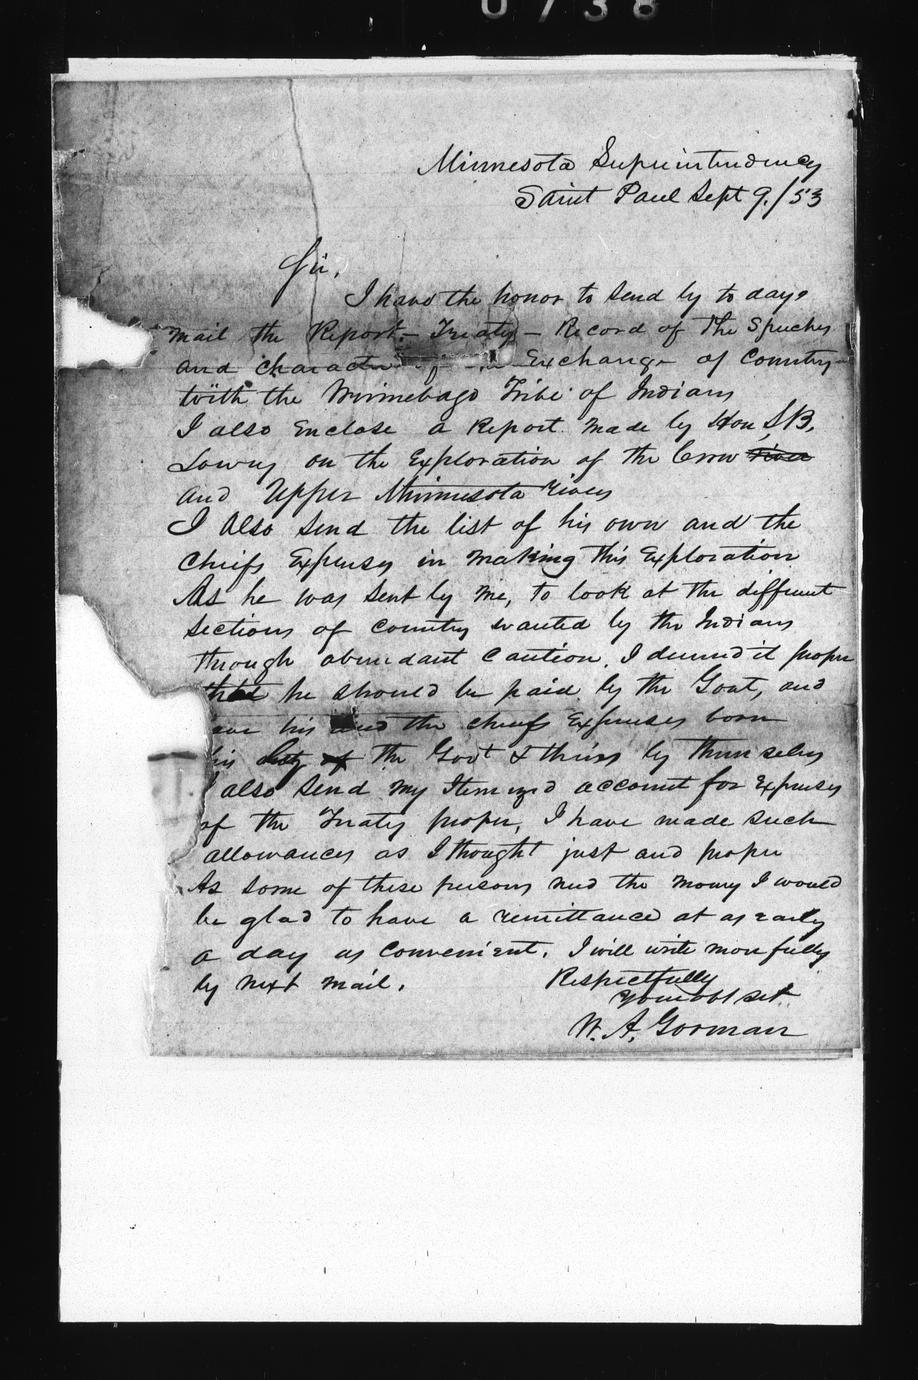 0738
Minnesota Superintendency
Saint Paul Sept 9./53
Sir,
I have the honor to send by to days
mail the Report - Treaty - Record of the Speeches
and character of Exchange of Country
with the Winnebago Tribe of Indians
I also Enclose a Report made by Hon S.B.
Lowry on the Exploration of the Crow river
and Upper Minnesota rivers
I also send the list of his own and the
chiefs Expenses in making this Exploration
As he was sent by me, to look at the different
sections of country wanted by the Indians
through abundant caution, I deemed it proper
that he should be paid by the Govt, and
have his and the chiefs Expenses born
his by the Govt & theirs by themselves
I also send my Itemized account for Expenses
of the Treaty proper, I have made such
allowances as I thought just and proper
As some of these persons need the money I would
be glad to have a remittance at as early
a day as convenient. I will write more fully
by next mail.
Respectfully
Your obt set
W. A. Gorman